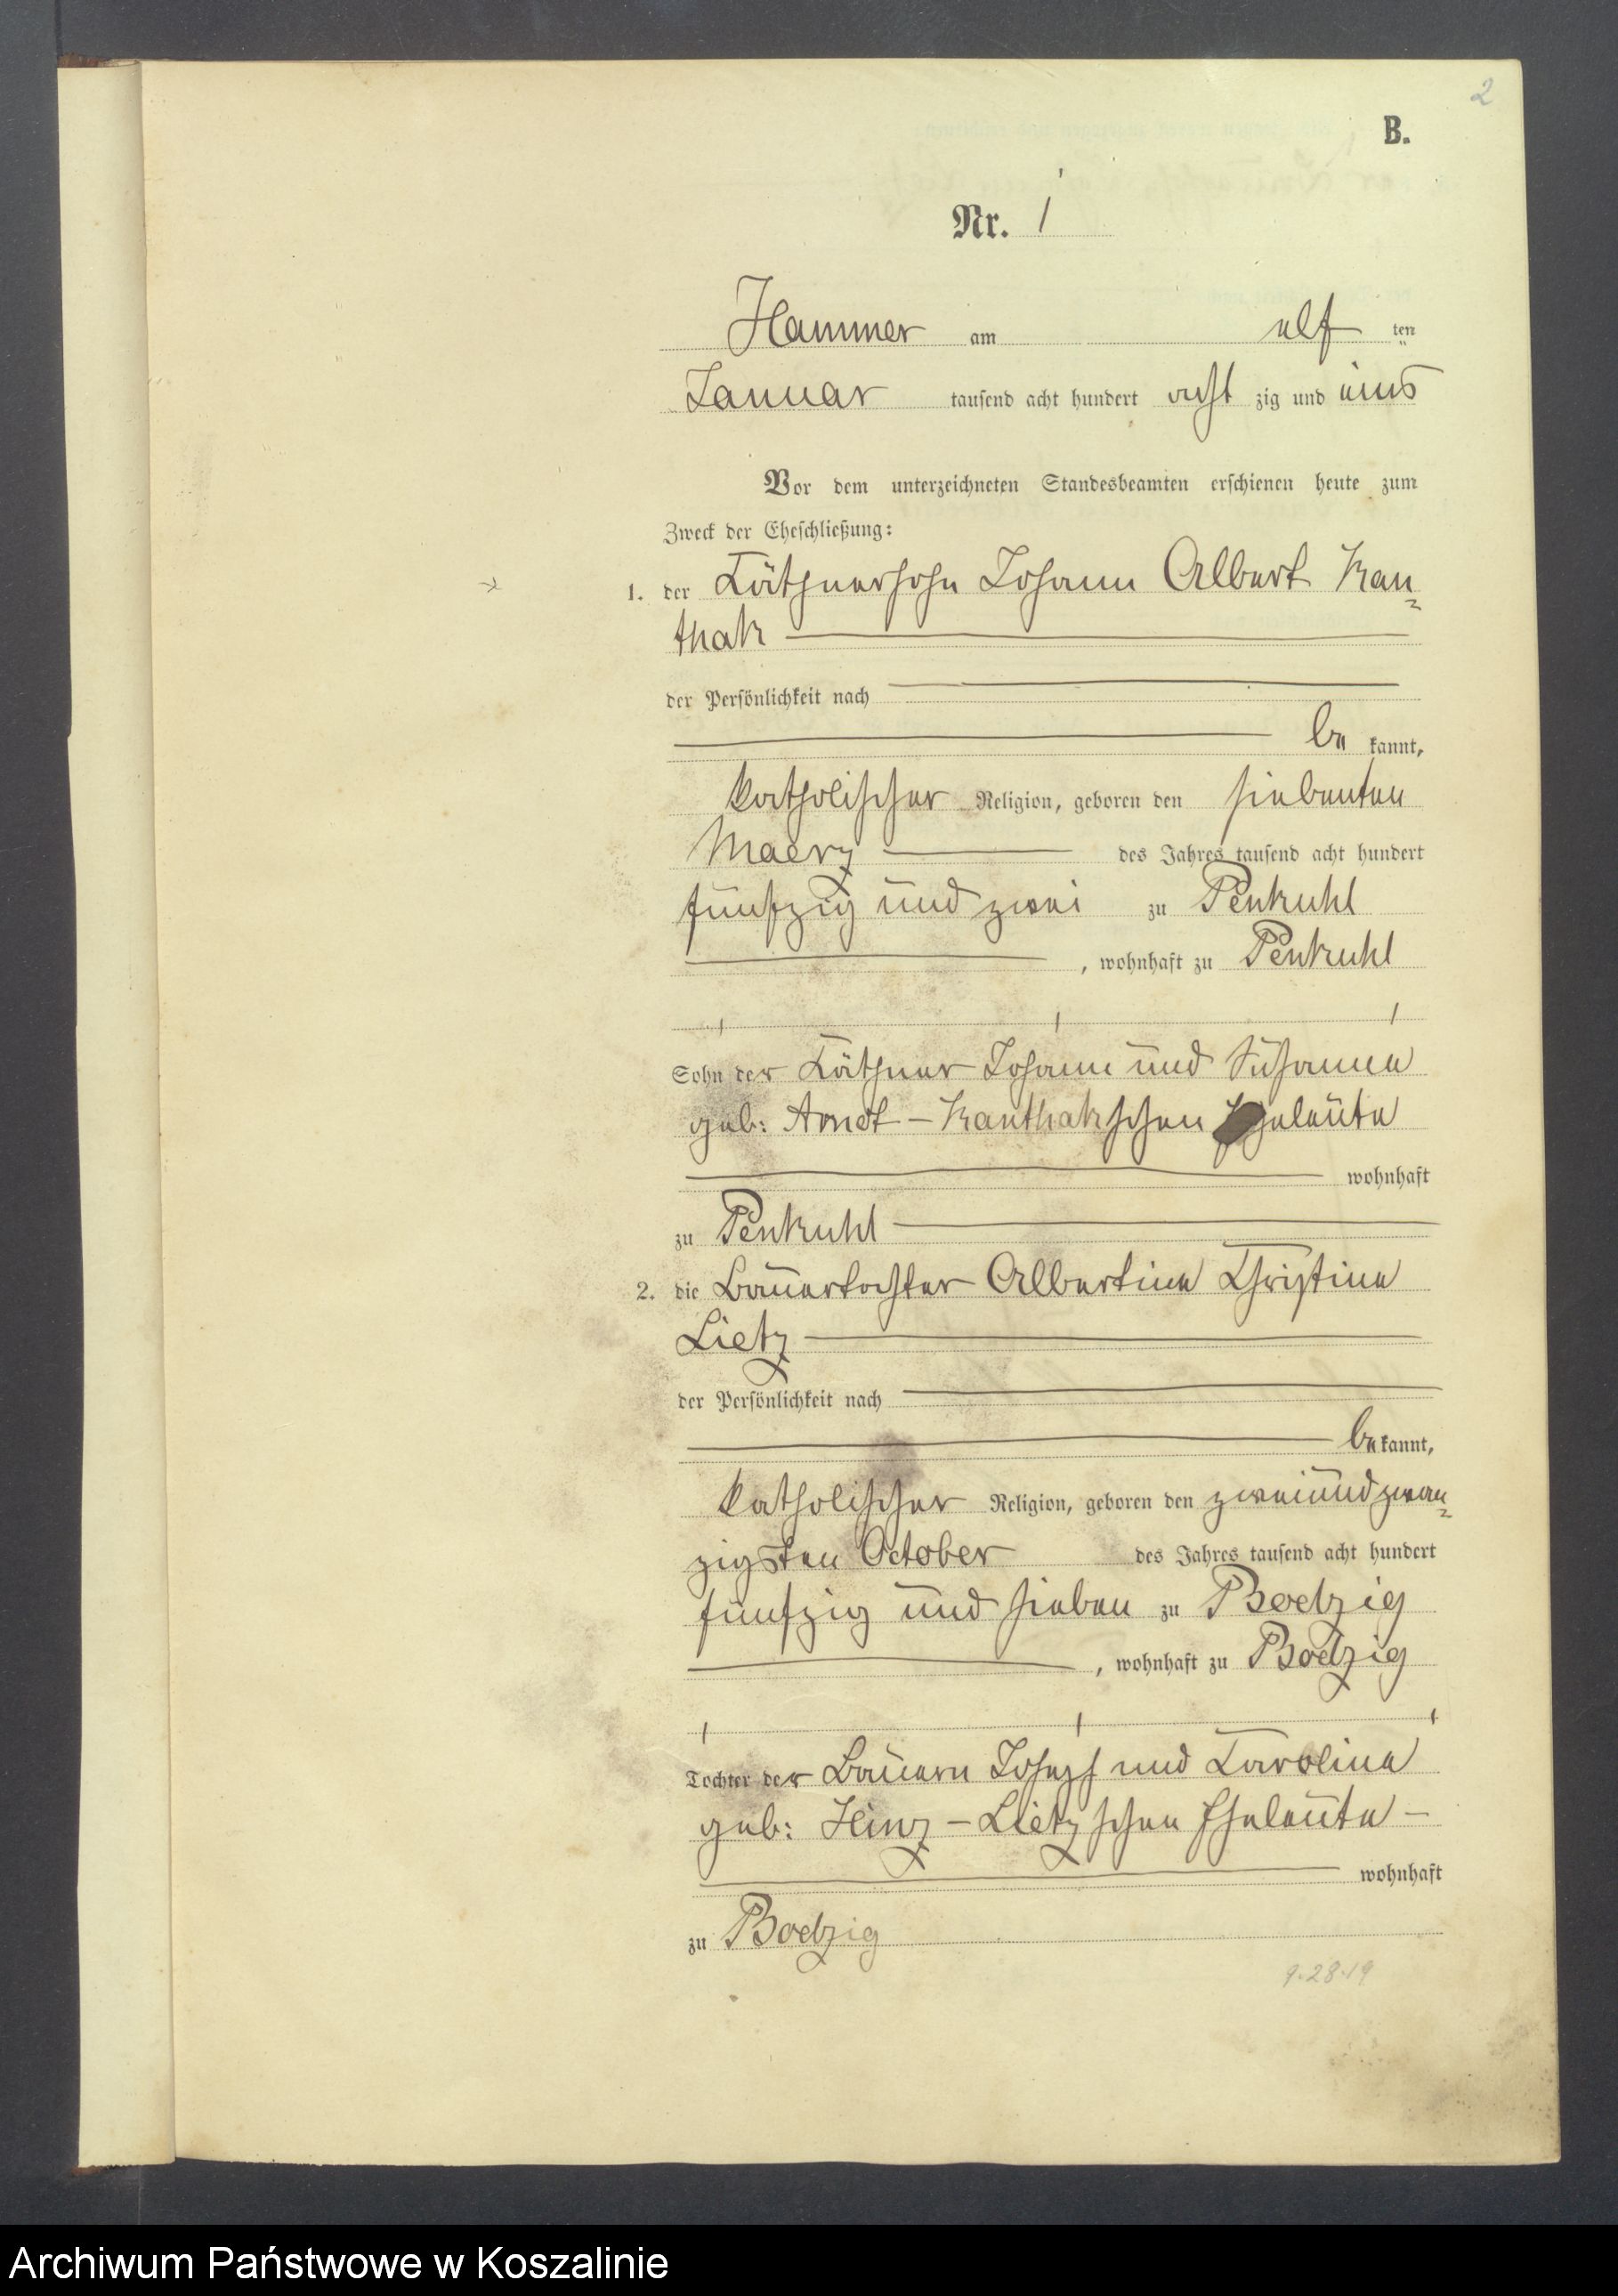 2
B.
Nr. 1
Hammer am elf ten
Januar tausend acht hundert acht zig und eins
Vor dem unterzeichneten Standesbeamten erschienen heute zum
Zweck der Eheschließung:
1. der Käthnersohn Johann Albert Kan-
thak
der Persönlichkeit nach
be kannt,
katholischer Religion, geboren den siebenten
Maerz des Jahres tausend acht hundert
fünfzig und zwei zu Penkuhl
, wohnhaft zu Penkuhl
Sohn der Käthner Johann und Susanna
geb: Arndt - Kanthakschen Eheleute
wohnhaft
zu Penkuhl
2. die Bauertochter Albertine Christine
Lietz
der Persönlichkeit nach
be kannt,
katholischer Religion, geboren den zweiundzwan-
zigsten October des Jahres tausend acht hundert
fünfzig und sieben zu Boelzig
, wohnhaft zu Boelzig
Tochter der Bauern Joseph und Caroline
geb: Hinz - Lietzschen Eheleute -
wohnhaft
zu Boelzig
9.28.19
Archiwum Państwowe w Koszalinie